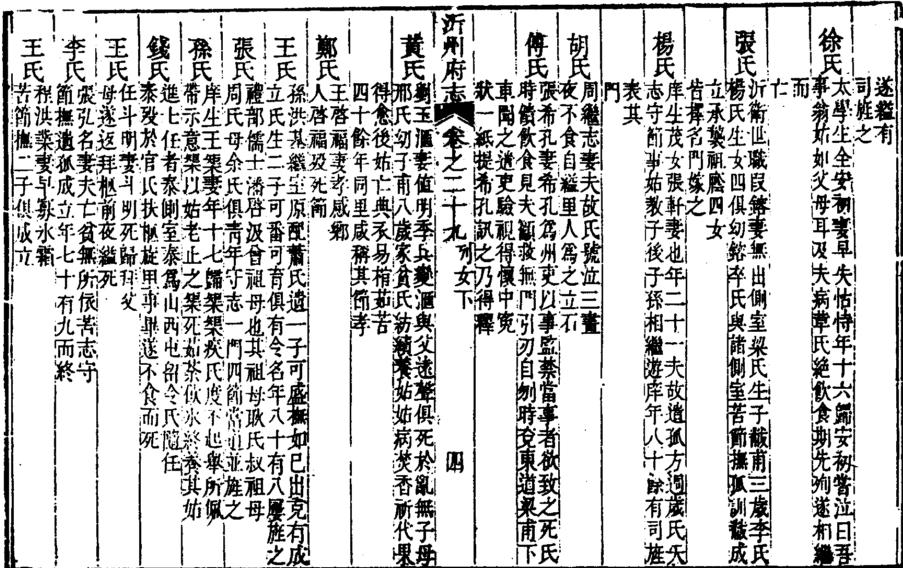 遂縊有
司旌之
徐氏
太學生全安初妻早失怙恃年十六歸安初嘗泣曰吾
事翁姑如父母耳及夫病葦氏絕飲食期先殉遂相繼
而
亡
張氏
沂衛世職段鎔妻無出側室梁氏生子黻甫三歲李氏
楊氏生女四俱幼鎔卒氏與諸側室苦節撫孤訓黻成
立承襲祖廕四女
皆擇名門嫁之
楊氏
庠生茂女張軒妻也年二十一夫故遺孤方週歲氏矢
志守節事姑教子後子孫相繼遊庠年八十餘有司旌
表其
門
胡氏
周繼志妻夫故氏號泣三晝
夜不食自縊里人為之立石
傅氏
張希孔妻希孔為州吏以事監禁當事者欲致之死氏
時饋飲食見夫顱骸無門引刃自刎時兗東道梁甫下
車聞之遣吏驗視得懷中寃
狀一紙提希孔訊之乃得釋
沂州府志 卷之二十九 列女下 四
黃氏
劉玉滙妻值明季兵變滙與父遠聲俱死於亂無子母
邢氏幼子甫八歲家貧氏紡績養姑姑病焚香祈代果
得愈後姑亡典衣易棺茹苦
四十餘年同里咸稱其節孝
鄭氏
王啓福妻孝感鄉
人啓福歿死節
王氏
孫洪基繼室原配蕭氏遺一子可盛撫如己出克有成
立氏生二子可番可育俱有令名年八十有八屢旌之
張氏
禮部儒士潘啓汲曾祖母也其祖母耿氏叔祖母
周氏母余氏俱靑年守志一門四節當道並旌之
孫氏
庠生王榘妻年十七歸榘榘疾氏度不起舉所佩
帶示意榘以姑老止之榘死茹茶飲氷終養其姑
錢氏
進士任者泰側室泰為山西屯留令氏隨任
泰歿於官氏扶柩旋里事畢遂不食而死
王氏
任斗明妻斗明死歸拜父
母遂返拜柩前夜縊死
李氏
張弘名妻夫亡貧無所依苦志守
節撫遺孤成立年七十有九而終
王氏
程洪業妻早寡氷霜
苦節撫二子俱成立